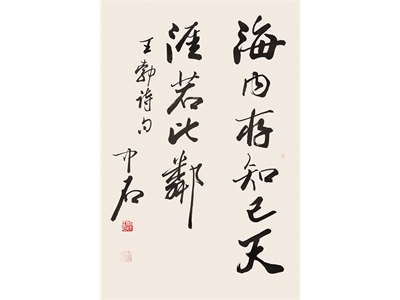 海内存知己天
涯若比鄰
王勃诗句
中石